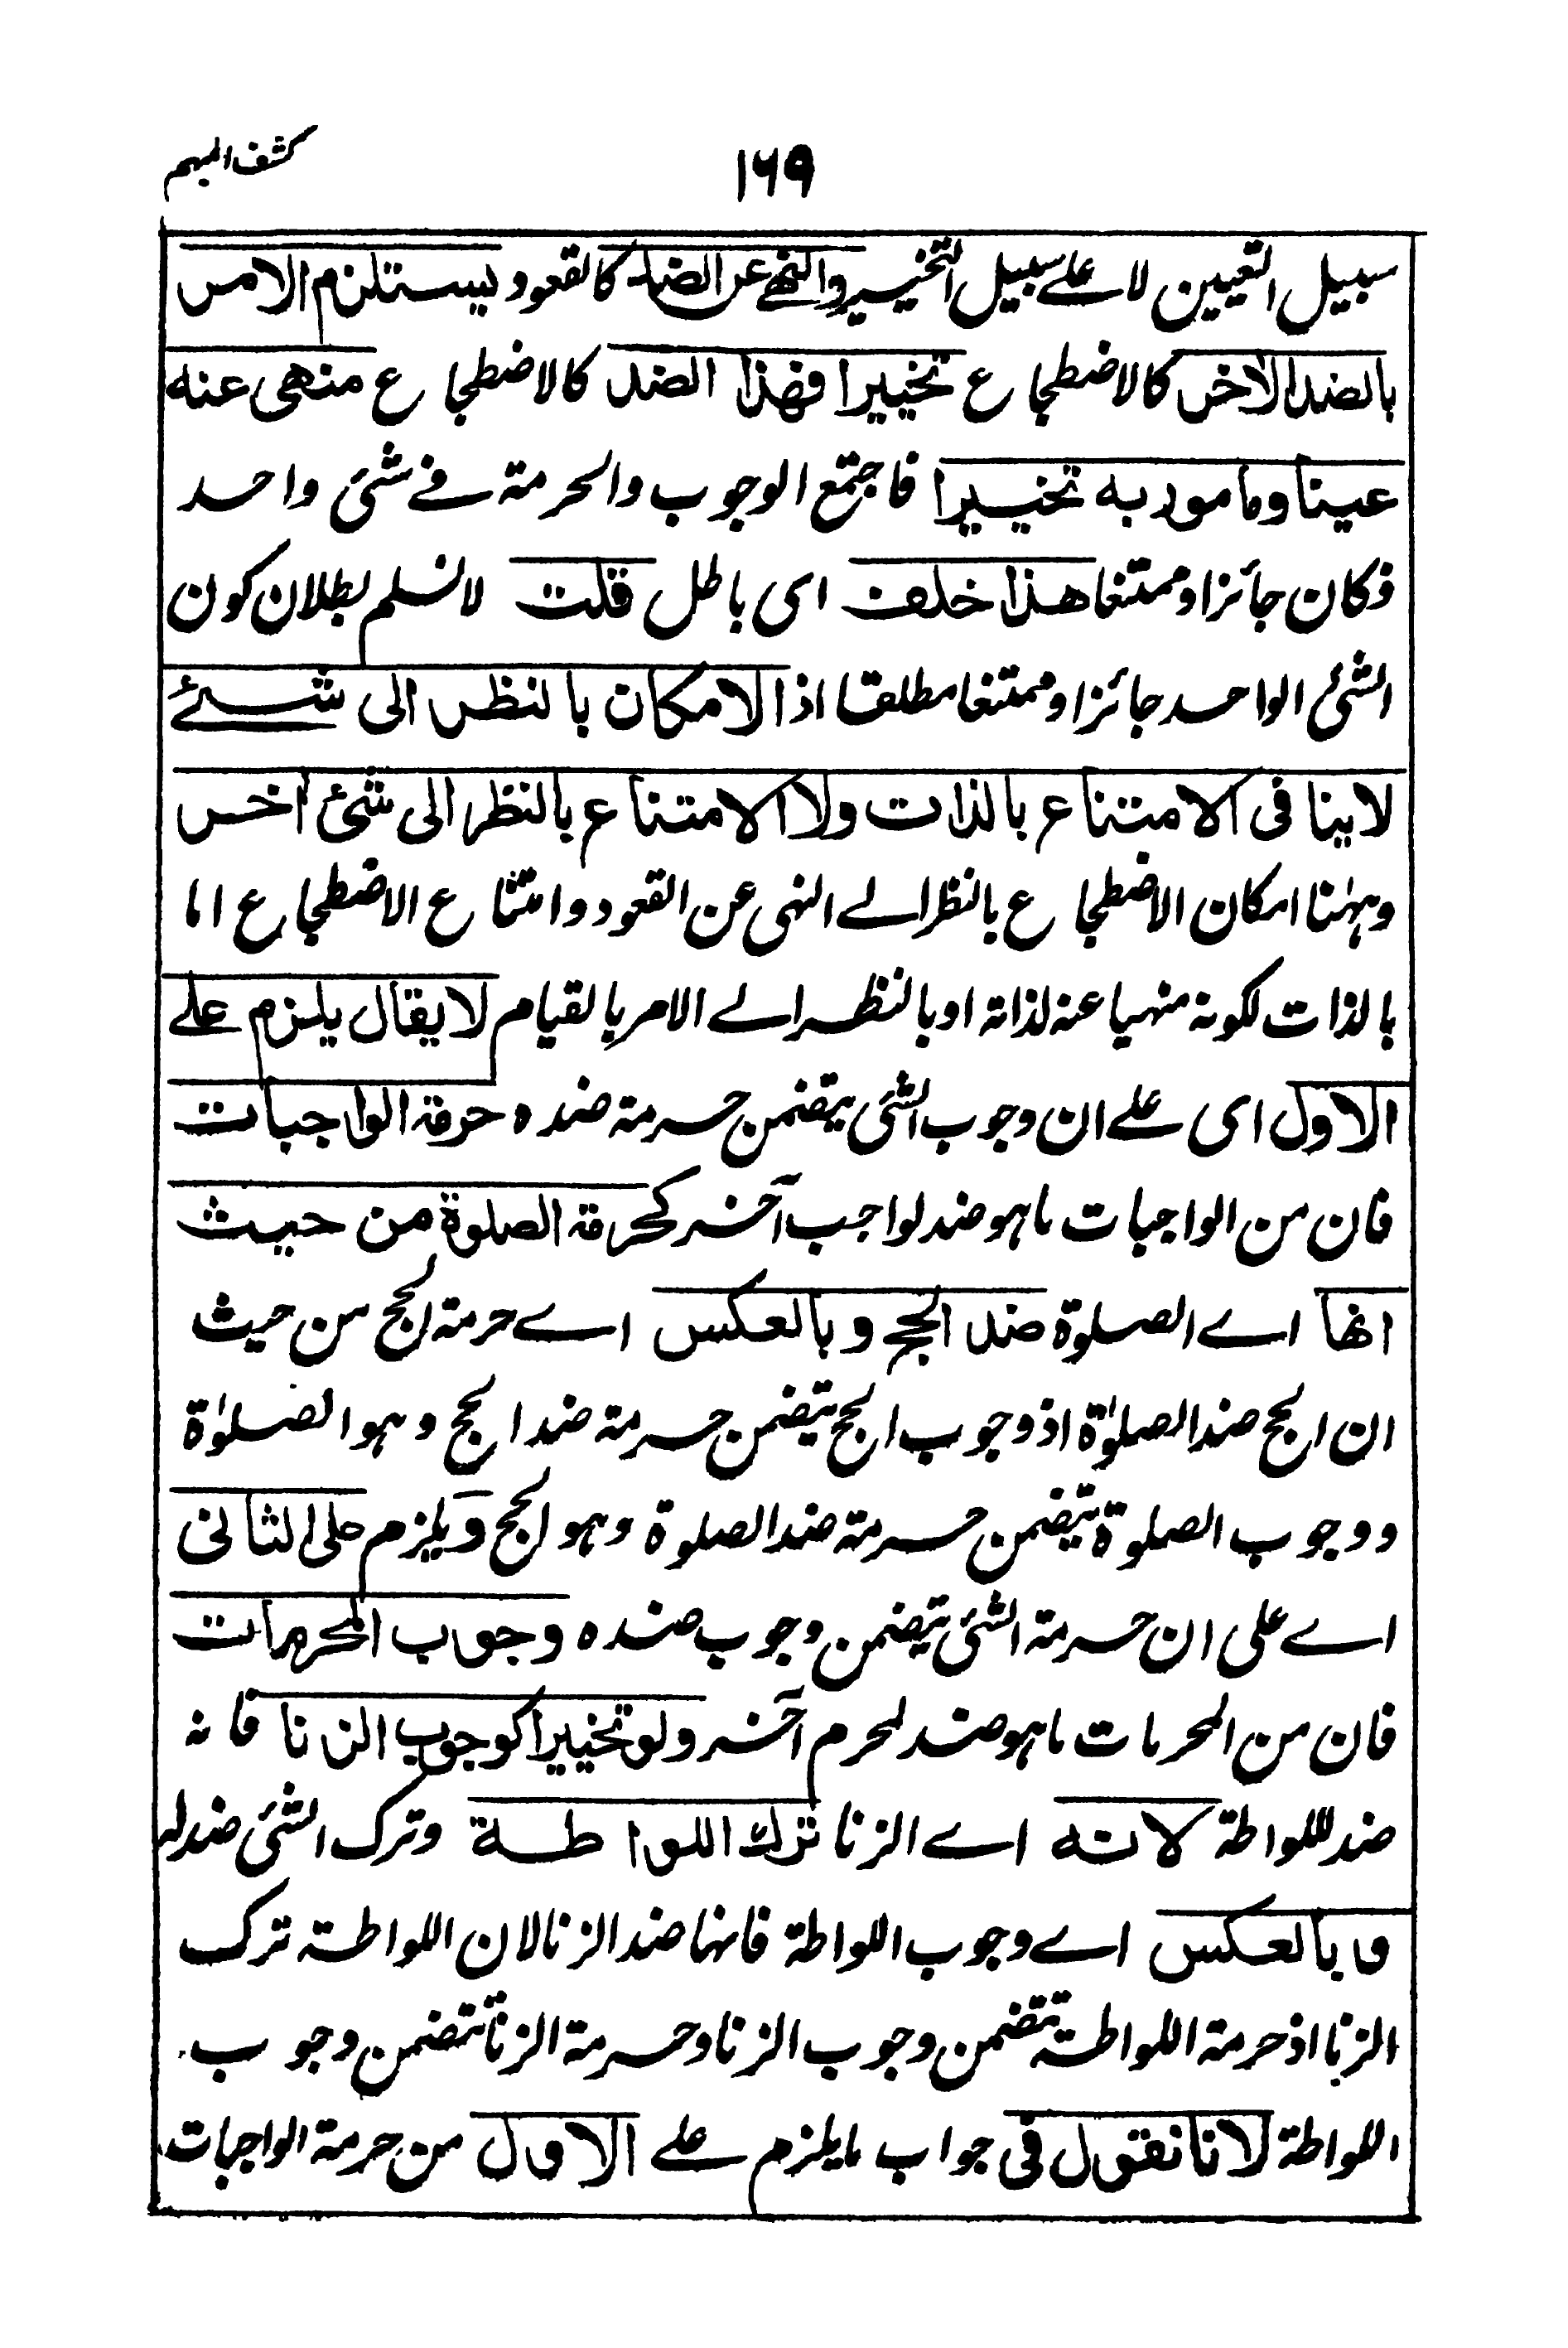 كشف المبهم
١٦٩
سبيل التعيين لا على سبيل التخيير والنهي عن الضد كالقعود يستلزم الامر
بالضد الاخر كالاضطجاع تخييرا فهذا الضد كالاضطجاع منهي عنه
عينا ومامور به تخييرا فاجتمع الوجوب والحرمة في شئ واحد
فكان جائزا وممتنعا هذا خلف اى باطل قلت لا نسلم بطلان كون
الشئ الواحد جائزا وممتنعا مطلقا اذ الامكان بالنظر الى شئ
لاينافى الامتناع بالذات ولا الامتناع بالنظر الى شئ اخر
وههنا امكان الاضطجاع بالنظر الى النهى عن القعود وامتناع الاضطجاع اما
بالذات لكونه منهيا عنه لذاته او بالنظر الى الامر بالقيام لا يقال يلزم على
الاول اى على ان وجوب الشئ يتضمن حرمة ضده حرمة الواجبات
فان من الواجبات ما هو ضد لواجب آخر كحرمة الصلوة من حيث
انها اى الصلوة ضد الحج وبالعكس اى حرمة الحج من حيث
ان الحج ضد الصلوٰة اذ وجوب الحج يتضمن حرمة ضد الحج وهو الصلوٰة
ووجوب الصلوة يتضمن حرمة ضد الصلوة وهو الحج ويلزم على الثانى
اى على ان حرمة الشئ يتضمن وجوب ضده وجوب المحرمات
فان من المحرمات ما هو ضد لمحرم آخر ولو تخييرا كوجوب الزنا فانه
ضد للواطة لانه اى الزنا ترك اللواطة وترك الشئ ضد له
وبالعكس اى وجوب اللواطة فانها ضد الزنا لان اللواطة ترك
الزنا اذ حرمة اللواطة تتضمن وجوب الزنا وحرمة الزنا تتضمن وجوب
اللواطة لانا نقول فى جواب ما يلزم على الاول من حرمة الواجبات